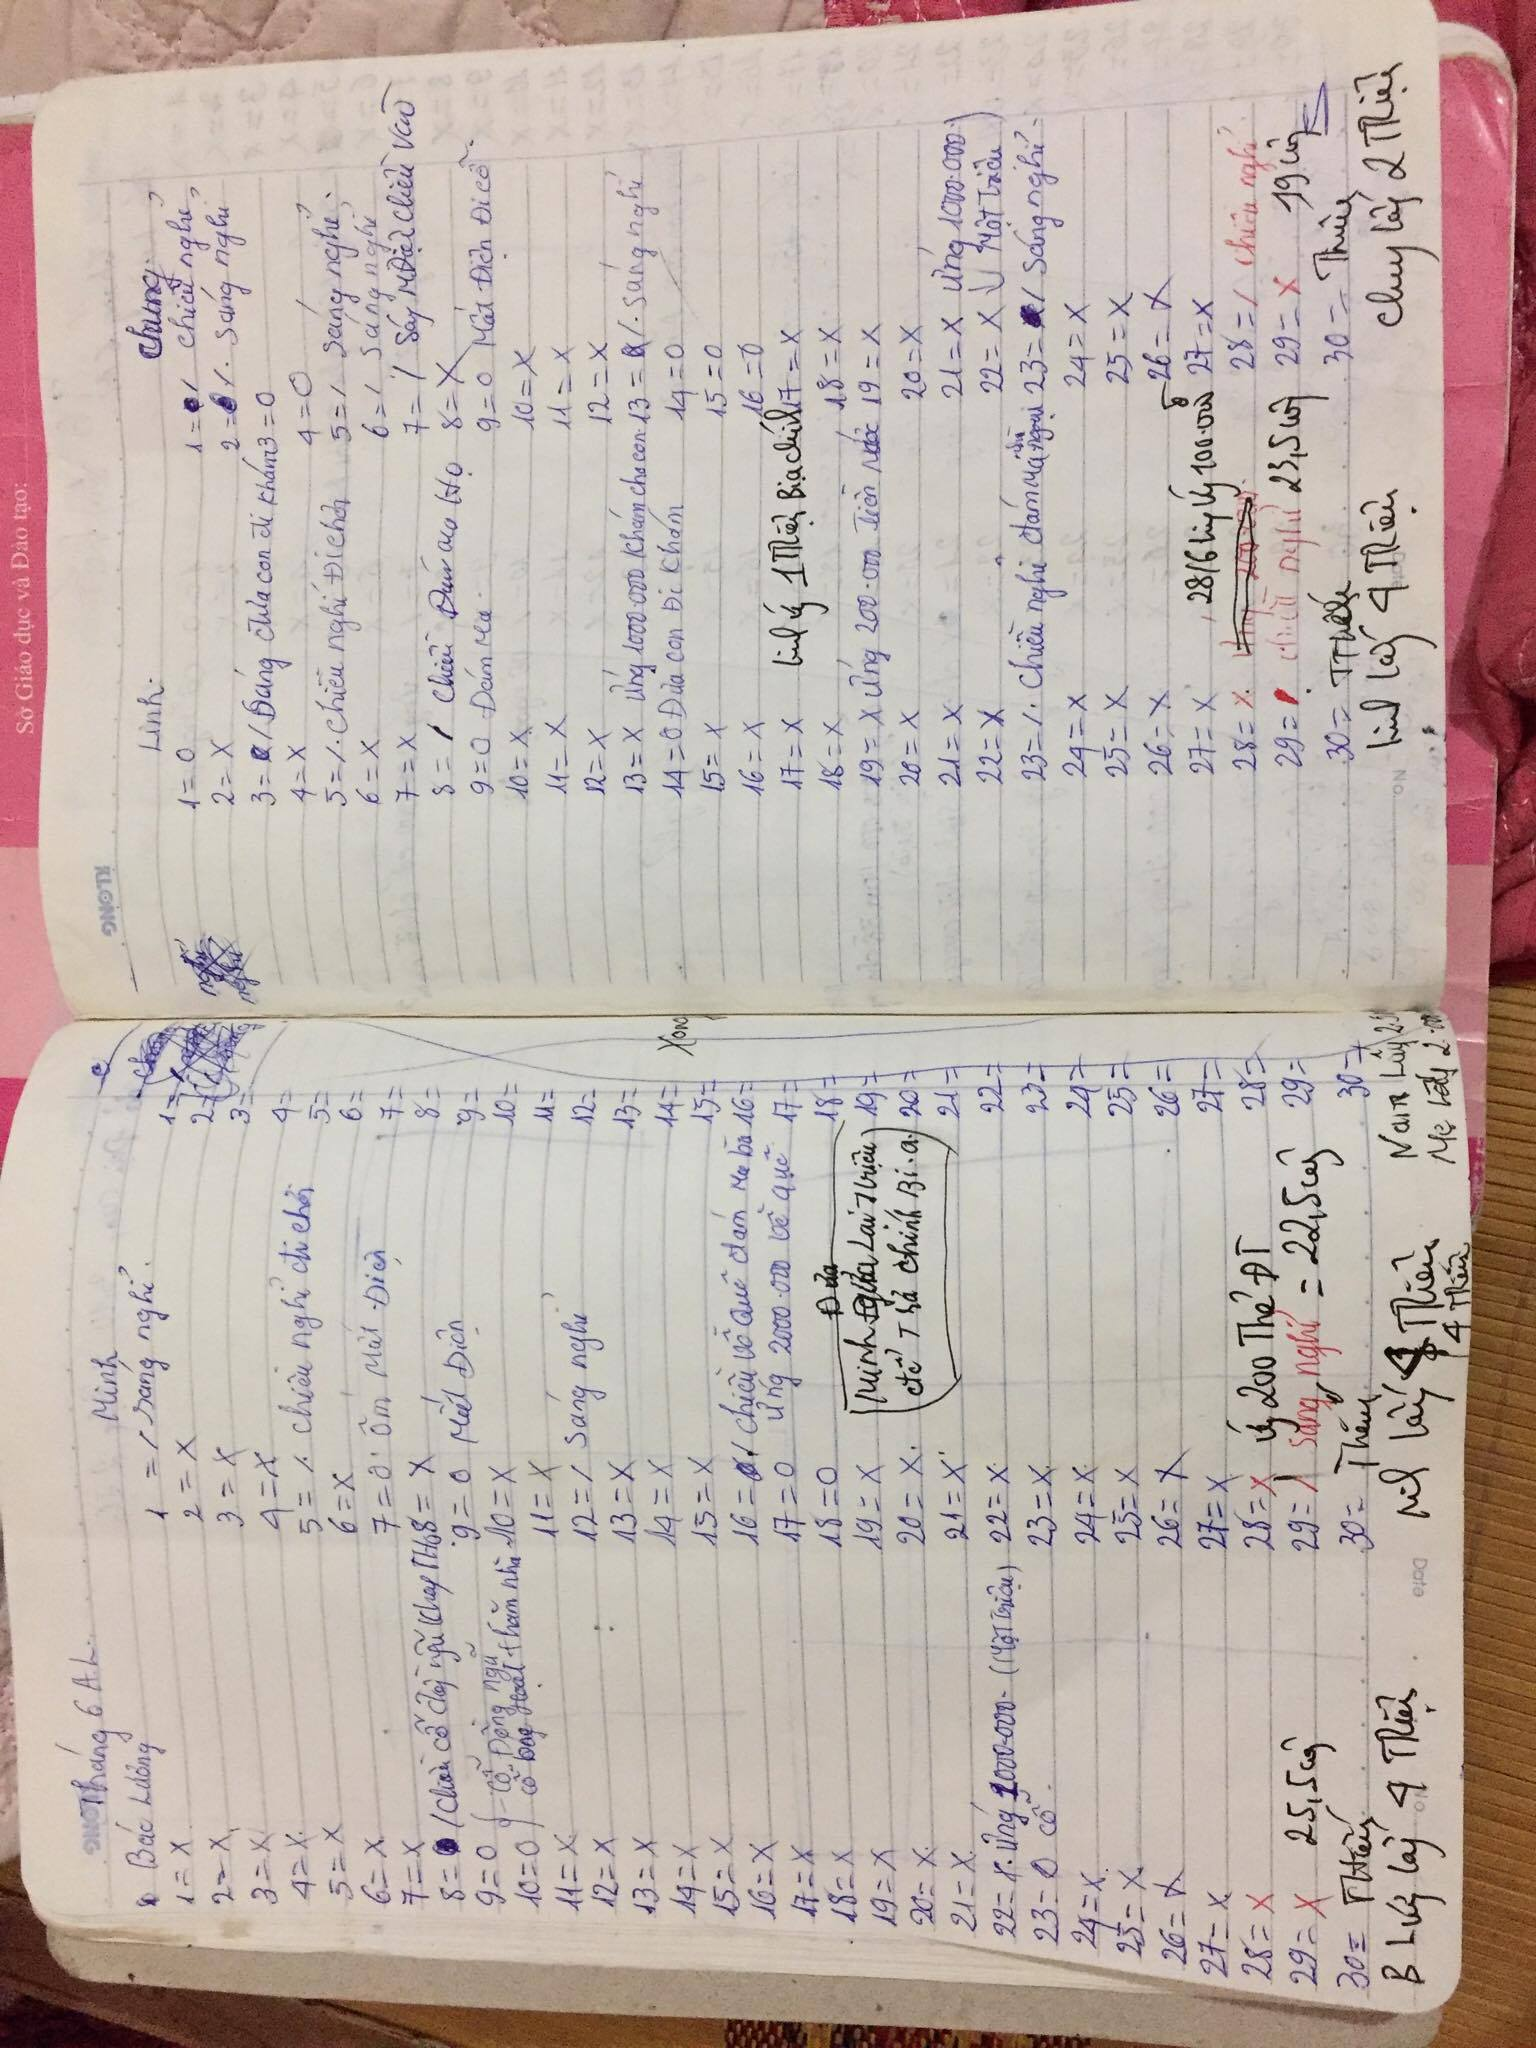 Sở Giáo dục và Đào tạo:
KLONG
Tháng 6 A.L.
Bác Lường
1 = X
2 = X
3 = X
4 = X
5 = X
6 = X
7 = X
8 = / Chiều cỗ
9 = 0
10 = 0
11 = X
12 = X
13 = X
14 = X
15 = X
16 = X
17 = X
18 = X
19 = X
20 = X
21 = X
22 = X. Ứng 1000.000- (Một triệu)
23 = 0 cỗ.
24 = X
25 = X
26 = X
27 = X
28 = X
29 = X 25,5 công
30 = Thiếu
B Lường lấy 4 Triệu
Minh
1 = / sáng nghỉ.
2 = X
3 = X
4 = X
5 = /. chiều nghỉ đi chơi
6 = X
7 = 0 ốm Mất Điện
8 = X
9 = 0 Mất Điện
10 = X
11 = X
12 = / sáng nghỉ
13 = X
14 = X
15 = X
16 = / chiều về quê đám ma bà
17 = 0 ứng 2000.000 về quê
18 = 0
19 = X
20 = X
21 = X
Đưa
Minh Lại 7 triệu
để Trả chính Bi.a
22 = X
23 = X
24 = X
25 = X
26 = X
27 = X
28 = X ứ 200 Thẻ ĐT
29 = / sáng nghỉ = 22,5 công
30 = Thiếu
lấy 4 Triệu
4 Triệu
1 =
2 =
3 =
4 =
5 =
6 =
7 =
8 =
9 =
10 =
11 =
12 =
13 =
14 =
15 =
16 =
17 =
18 =
19 =
20 =
21 =
22 =
23 =
24 =
25 =
26 =
27 =
28 =
29 =
30 =
Xong
Nam Lấy
Mẹ Lấy
Date
No.
KLONG
Linh.
1 = 0
2 = X
3 = / Sáng đưa con đi khám
4 = X
5 = /. chiều nghỉ Đi chơi
6 = X
7 = X
8 = / chiều Đám
9 = 0 Đám Ma
10 = X
11 = X
12 = X
13 = X ứng 1000.000 khám cho con
14 = 0 Đưa con Đi khám
15 = X
16 = X
17 = X Linh ứ 1 Triệu Bia chính
18 = X
19 = X ứng 200.000 Tiền
20 = X
21 = X
22 = X
23 = /. chiều nghỉ đám
24 = X
25 = X
26 = X
27 = X 28/6 Linh ứ 100.000
28 = X
29 = / chiều nghỉ 23,5 công
30 = Thiếu
Linh lấy 4 Triệu
Chung
1 = / chiều nghỉ
2 = /. Sáng nghỉ
3 = 0
4 = 0
5 = / sáng nghỉ
6 = / sáng nghỉ
7 = / Sáng M Điện chiều vào
8 = X
9 = 0 Mất Điện Đi cỗ.
10 = X
11 = X
12 = X
13 = /. sáng nghỉ
14 = 0
15 = 0
16 = 0
17 = X
18 = X
19 = X
20 = X
21 = X ứng 1000.000
22 = X Một triệu
23 = / Sáng nghỉ
24 = X
25 = X
26 = X
27 = X
28 = / chiều nghỉ
29 = X 19 công
30 = Thiếu
Chung lấy 2 Triệu
No.